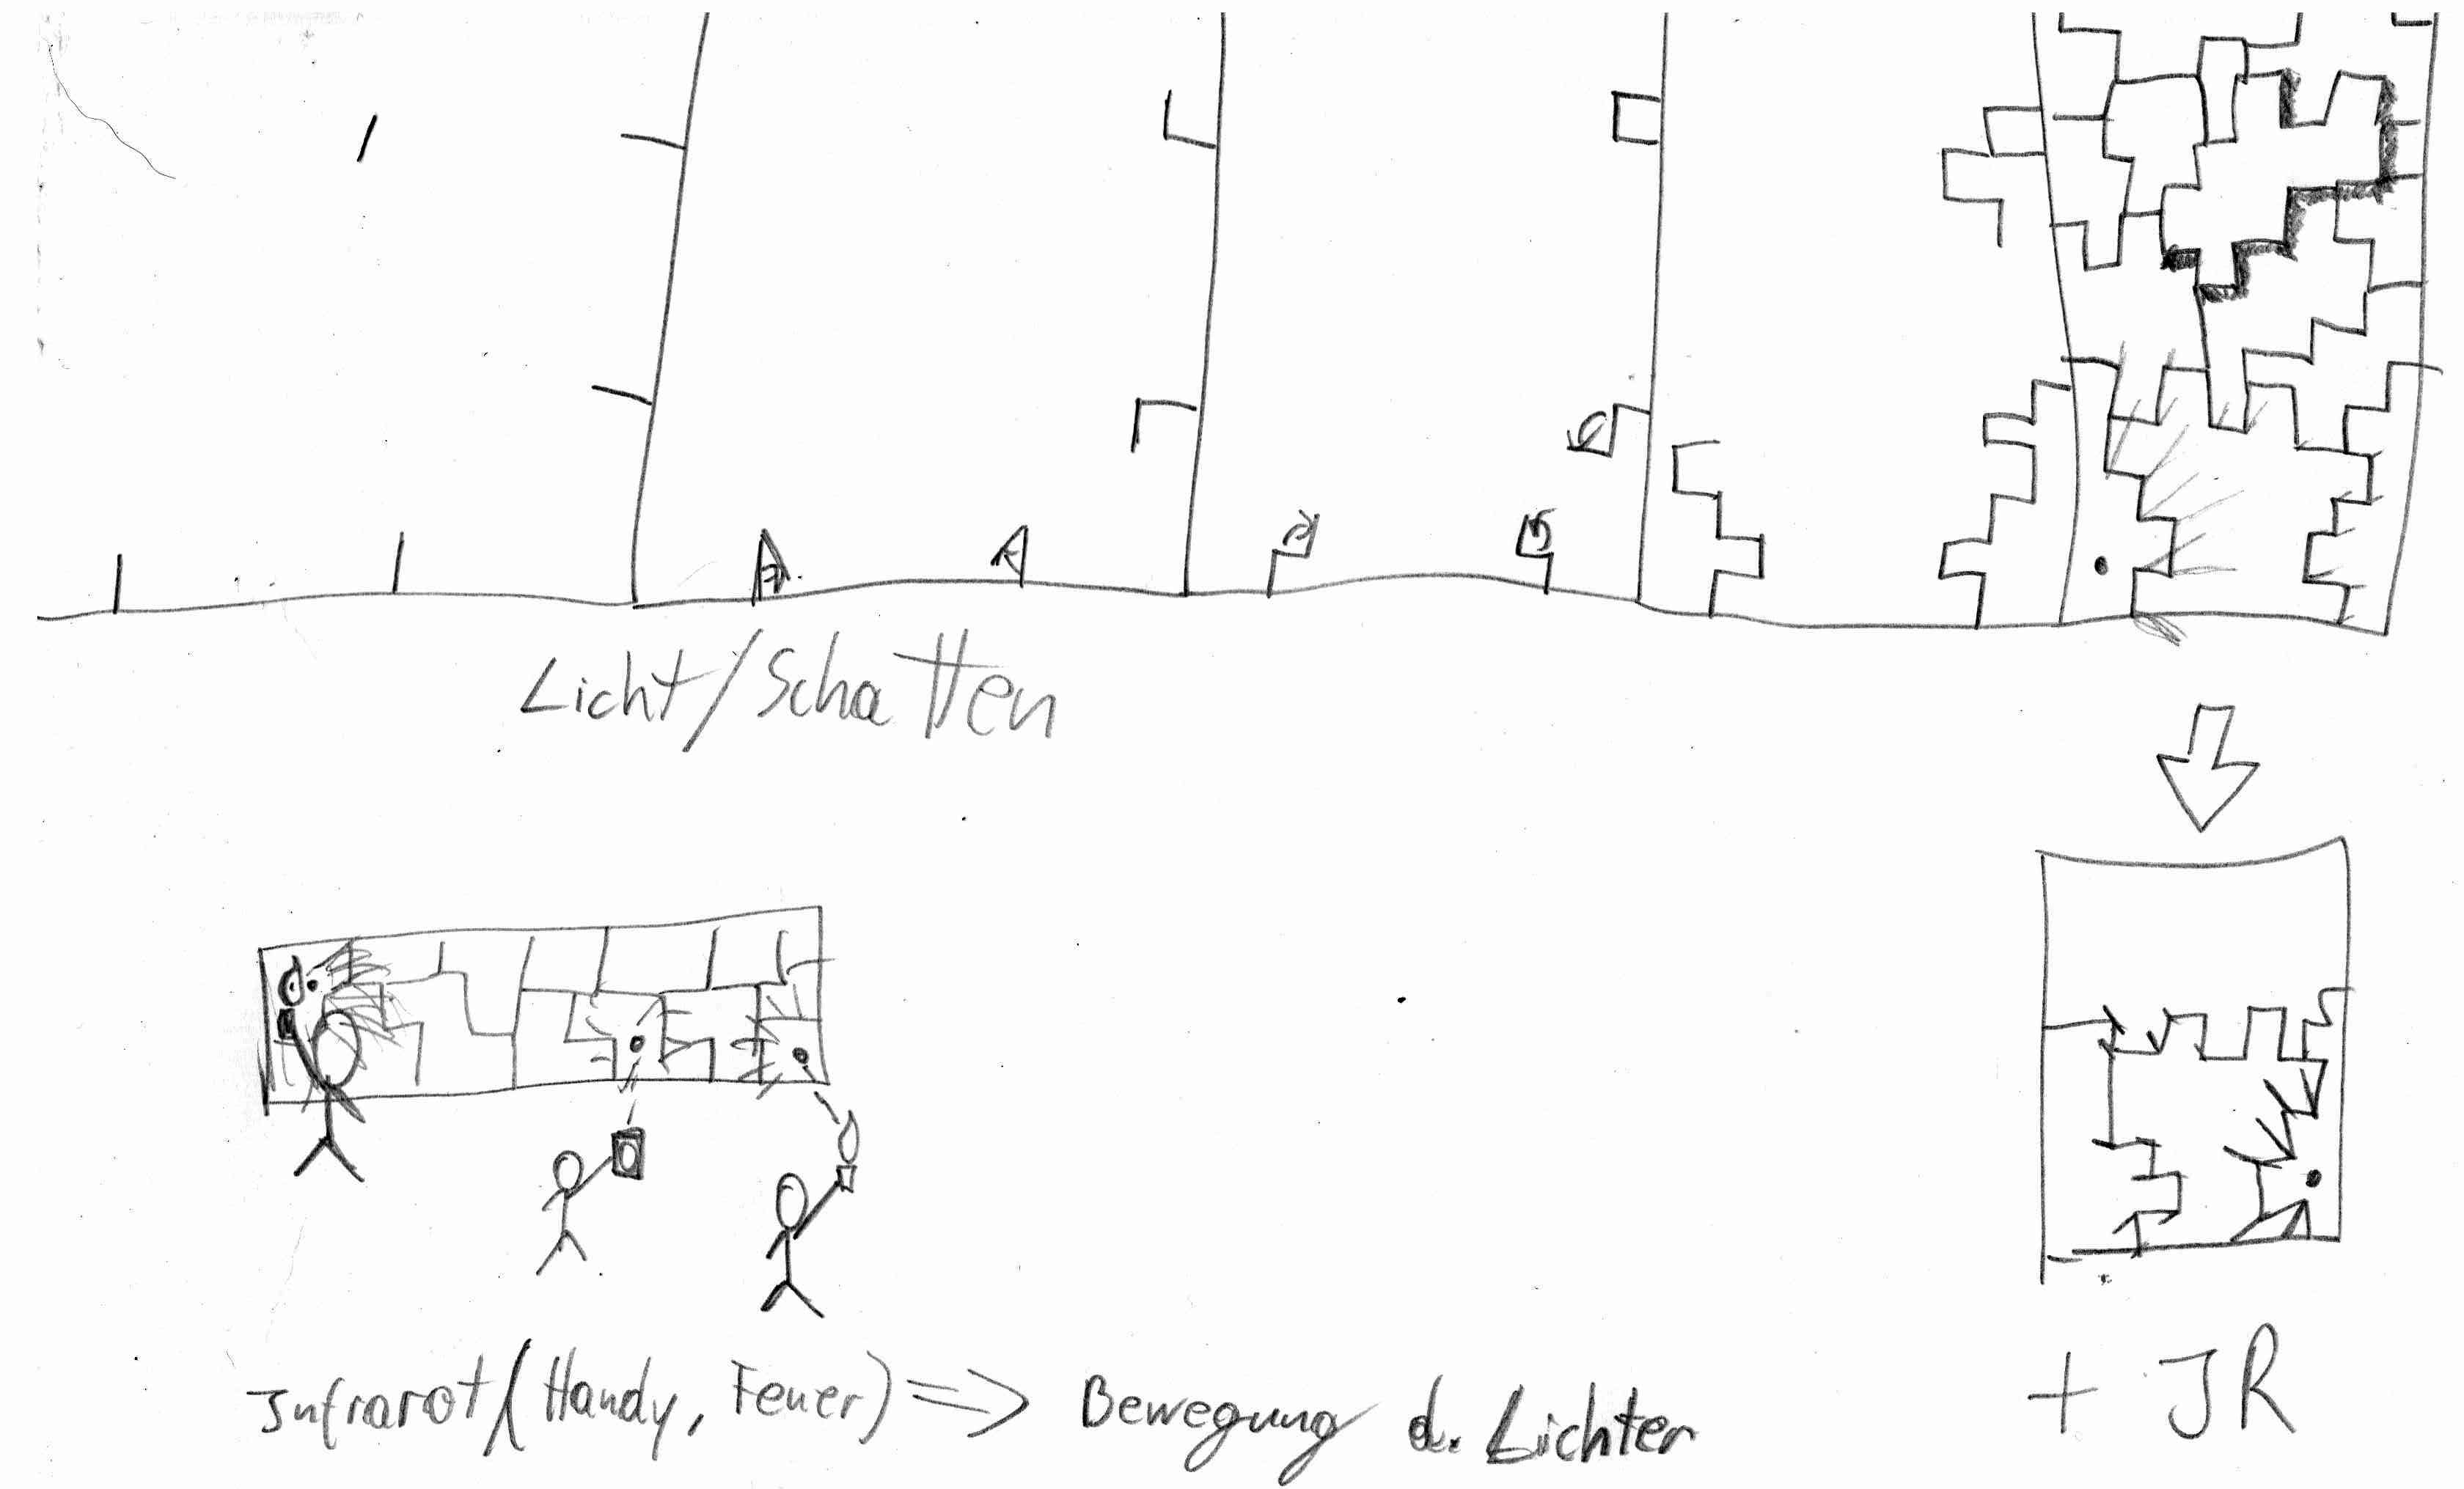 Licht/Schatten
Infrarot/(Handy, Feuer) => Bewegung d. Lichter
+ IR